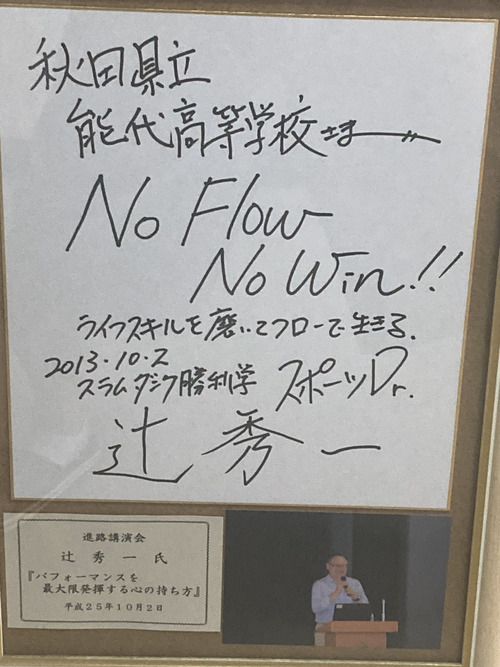 秋田県立
能代高等学校さま
No Flow
No Win!!
ライフスキルを磨いてフローで生きる.
2013.10.2
スラムダンク勝利学 スポーツDr.
辻秀一
進路講演会
辻秀一氏
『パフォーマンスを
最大限発揮する心の持ち方』
平成25年10月2日